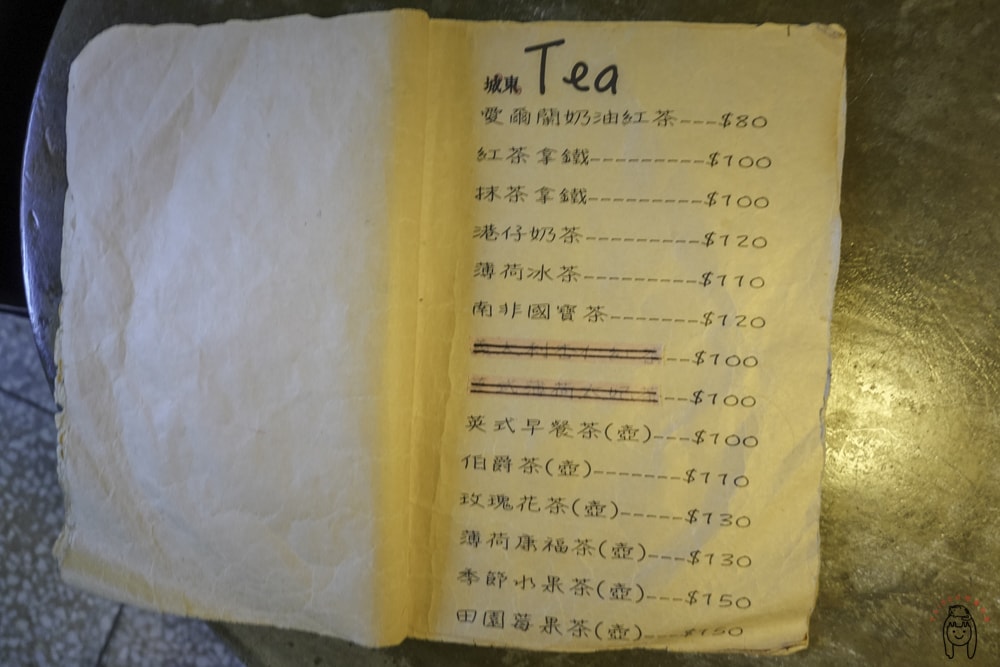 城東 Tea
愛爾蘭奶油紅茶---$80
紅茶拿鐵---------$100
抹茶拿鐵---------$100
港仔奶茶---------$120
薄荷冰茶---------$110
南非國寶茶-------$120
--$100
--$100
英式早餐茶(壺)---$100
伯爵茶(壺)-------$110
玫瑰花茶(壺)-----$130
薄荷康福茶(壺)---$130
季節水果茶(壺)---$150
田園莓果茶(壺)---$150